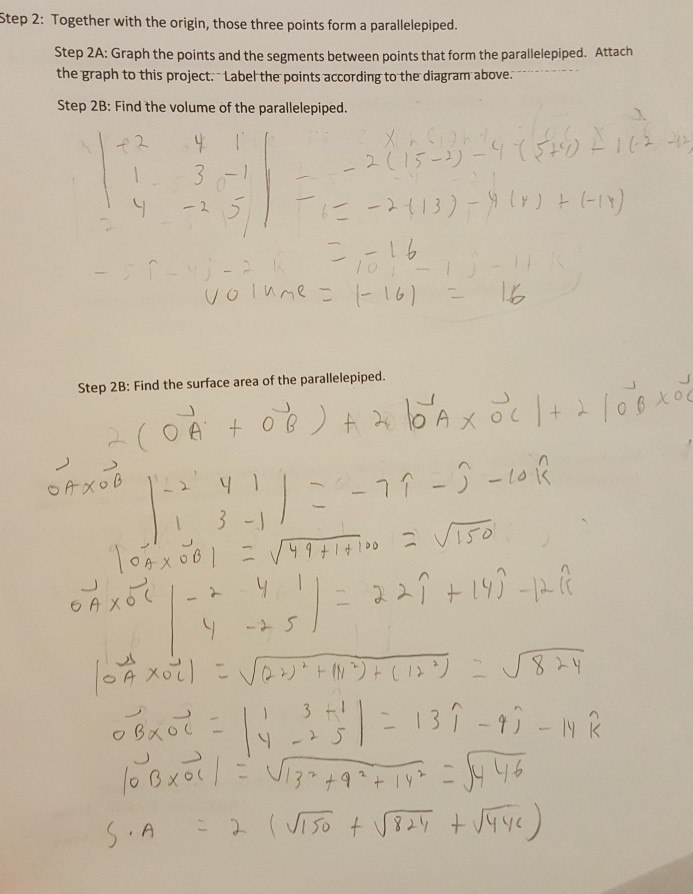 Step 2: Together with the origin, those three points form a parallelepiped.
Step 2A: Graph the points and the segments between points that form the parallelepiped. Attach
the graph to this project. Label the points according to the diagram above.
Step 2B: Find the volume of the parallelepiped.
| -2 4 1 |
| 1 3 -1 | = -2(15-2) -4(5+4) + 1(-2 -12)
| 4 -2 5 | = -2(13) -4(9) + (-14)
= -16
volume = |-16| = 16
Step 2B: Find the surface area of the parallelepiped.
2(OA + OB) + 2|OA × OC| + 2|OB × OC
OA×OB | -2 4 1 | = -7î - ĵ -10k̂
| 1 3 -1 |
|OA×OB| = √49+1+100 = √150
OA×OC | -2 4 1 | = 22î + 14ĵ -12k̂
| 4 -2 5 |
|OA×OC| = √(22)²+(14²)+(12²) = √824
OB×OC = | 1 3 +1 | = 13î -9ĵ - 14k̂
| 4 -2 5 |
|OB×OC| = √13²+9²+14² = √446
S.A = 2(√150 + √824 + √446)